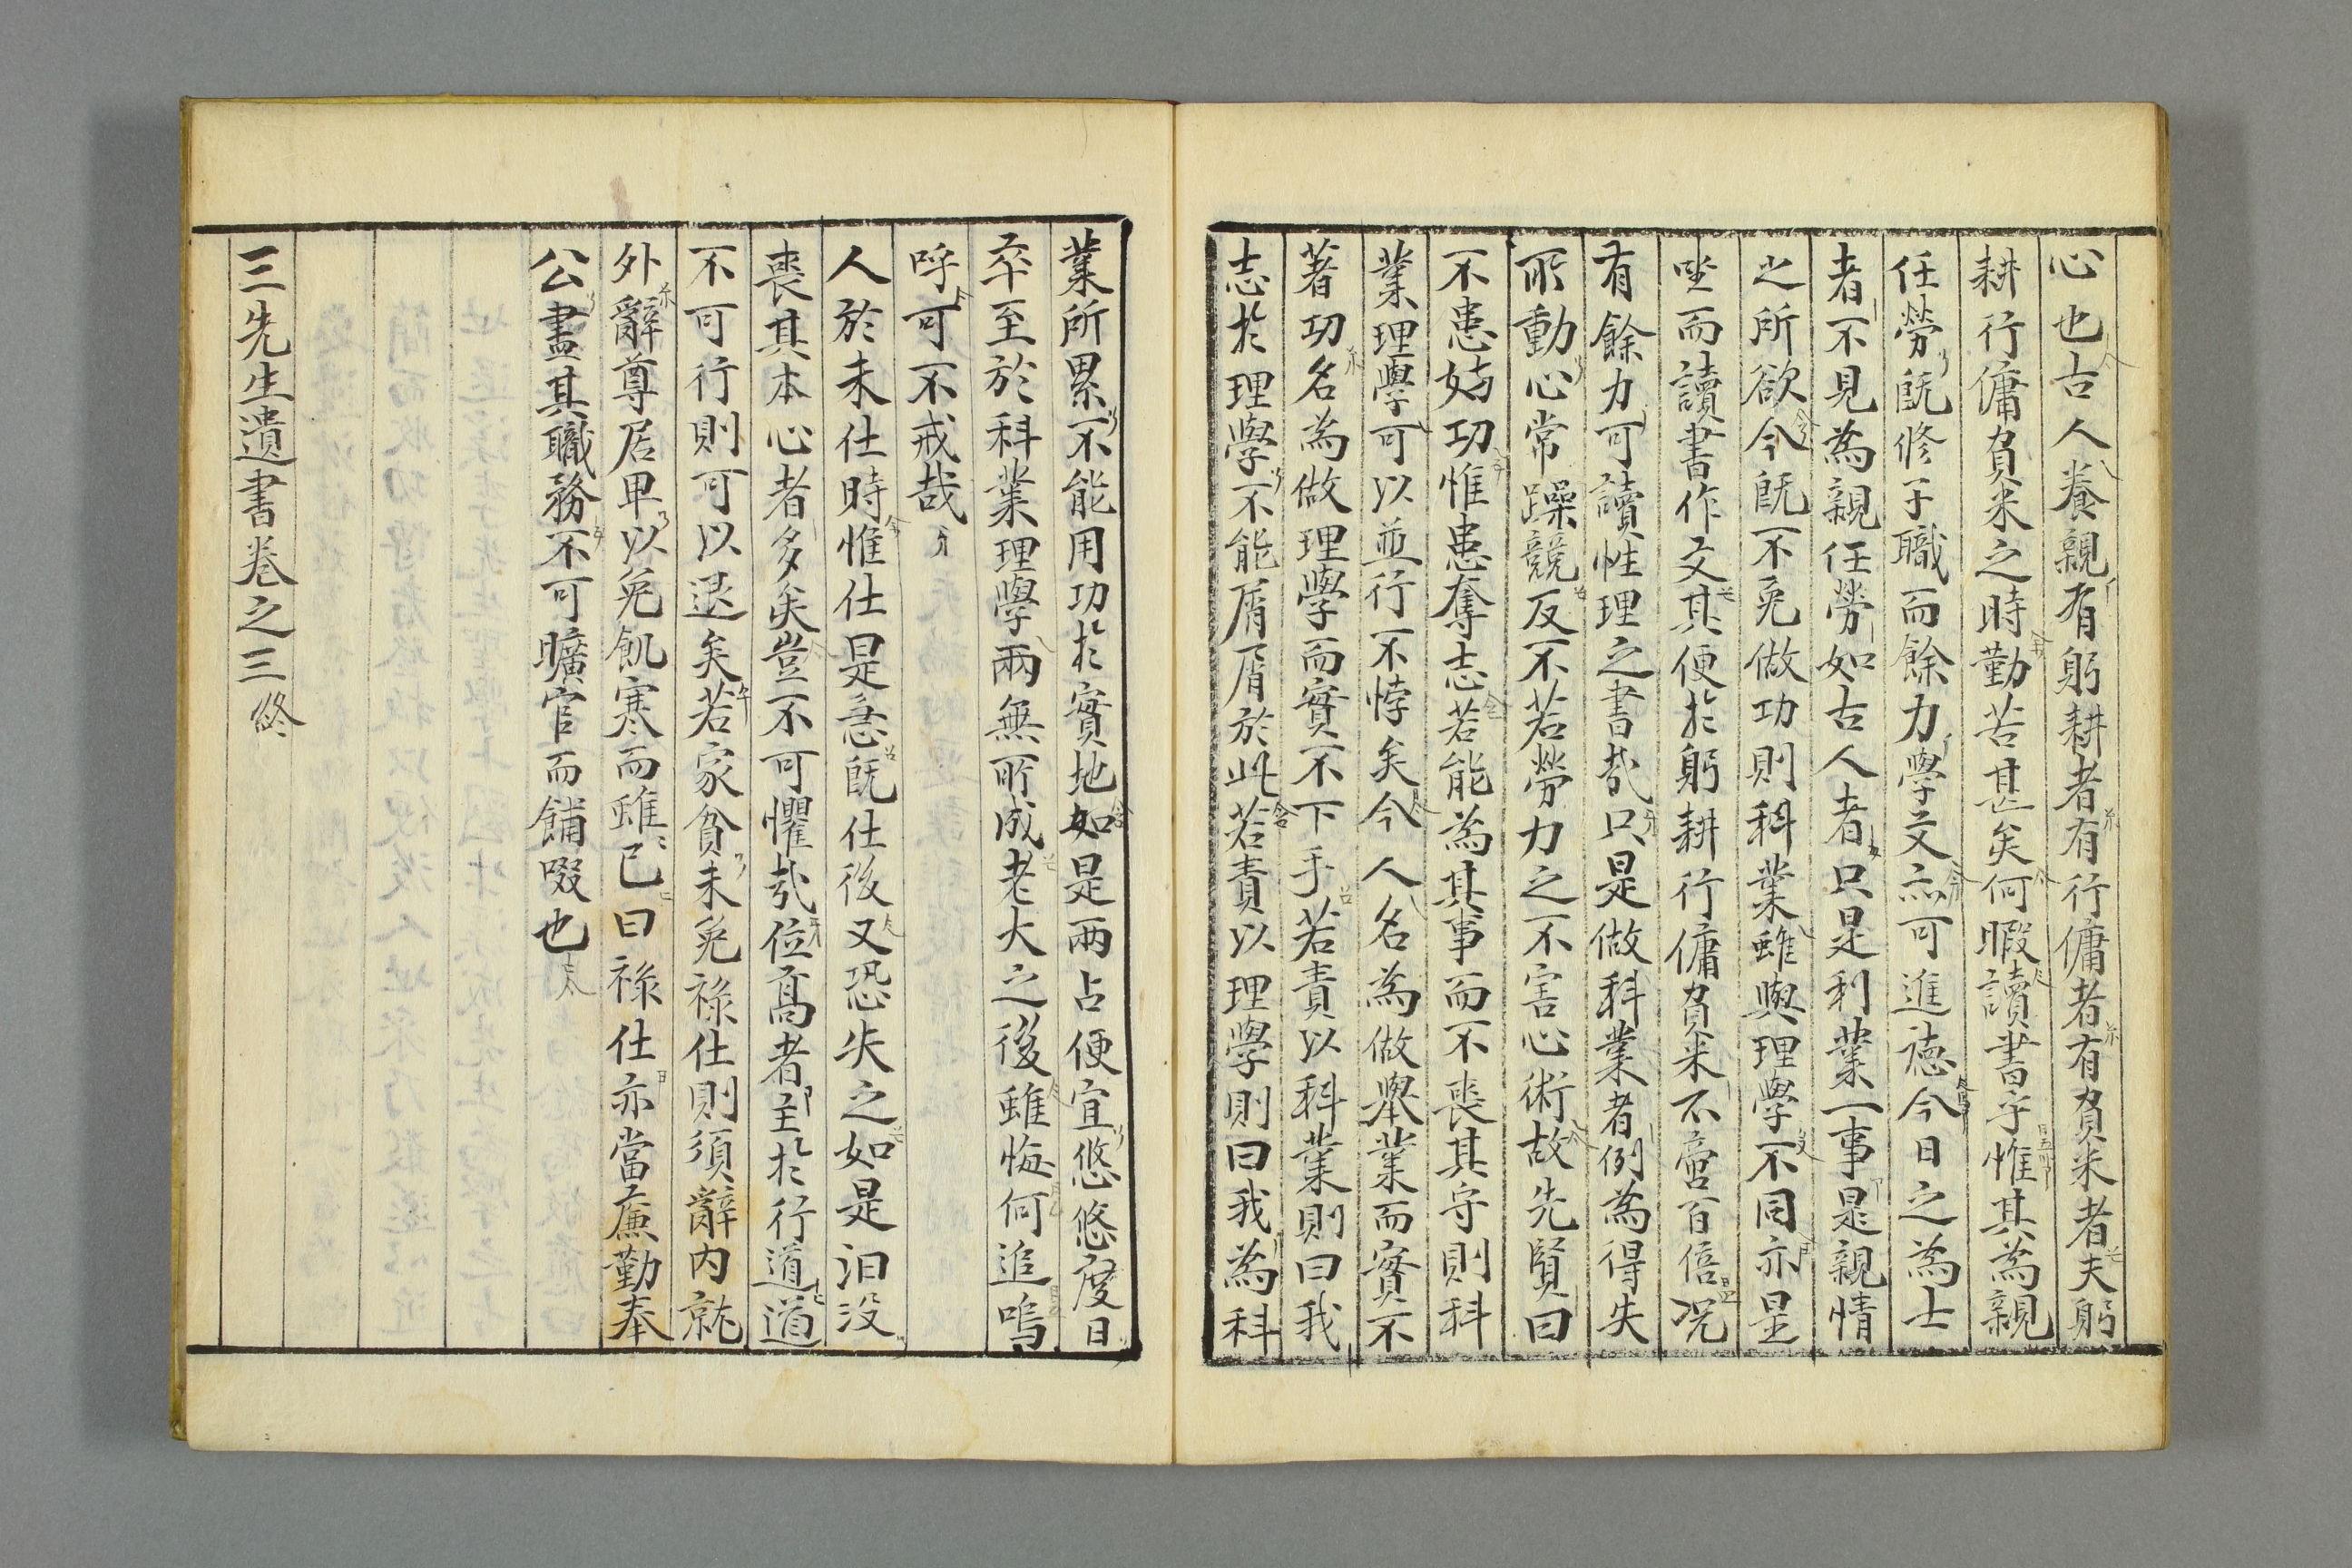 心也古人養親有躬耕者有行傭者有負米者夫躬
耕行傭負米之時勤苦甚矣何暇讀書乎惟其為親
任勞旣修子職而餘力學文亦可進德今日之為士
者不見為親任勞如古人者只是科業一事是親情
之所欲今旣不免做功則科業雖與理學不同亦是
坐而讀書作文其便於躬耕行傭負米不啻百倍況
有餘力可讀性理之書哉只是做科業者例為得失
所動心常躁競反不若勞力之不害心術故先賢曰
不患妨功惟患奪志若能為其事而不喪其守則科
業理學可以並行不悖矣今人名為做擧業而實不
著功名為做理學而實不下手若責以科業則曰我
志於理學不能屑屑於此若責以理學則曰我為科
業所累不能用功於實地如是兩占便宜悠悠度日
卒至於科業理學兩無所成老大之後雖悔何追嗚
呼可不戒哉
人於未仕時惟仕是急旣仕後又恐失之如是汨沒
喪其本心者多矣豈不可懼哉位高者主於行道道
不可行則可以退矣若家貧未免祿仕則須辭內就
外辭尊居卑以免飢寒而雖已曰祿仕亦當廉勤奉
公盡其職務不可曠官而餔啜也
三先生遺書卷之三 終